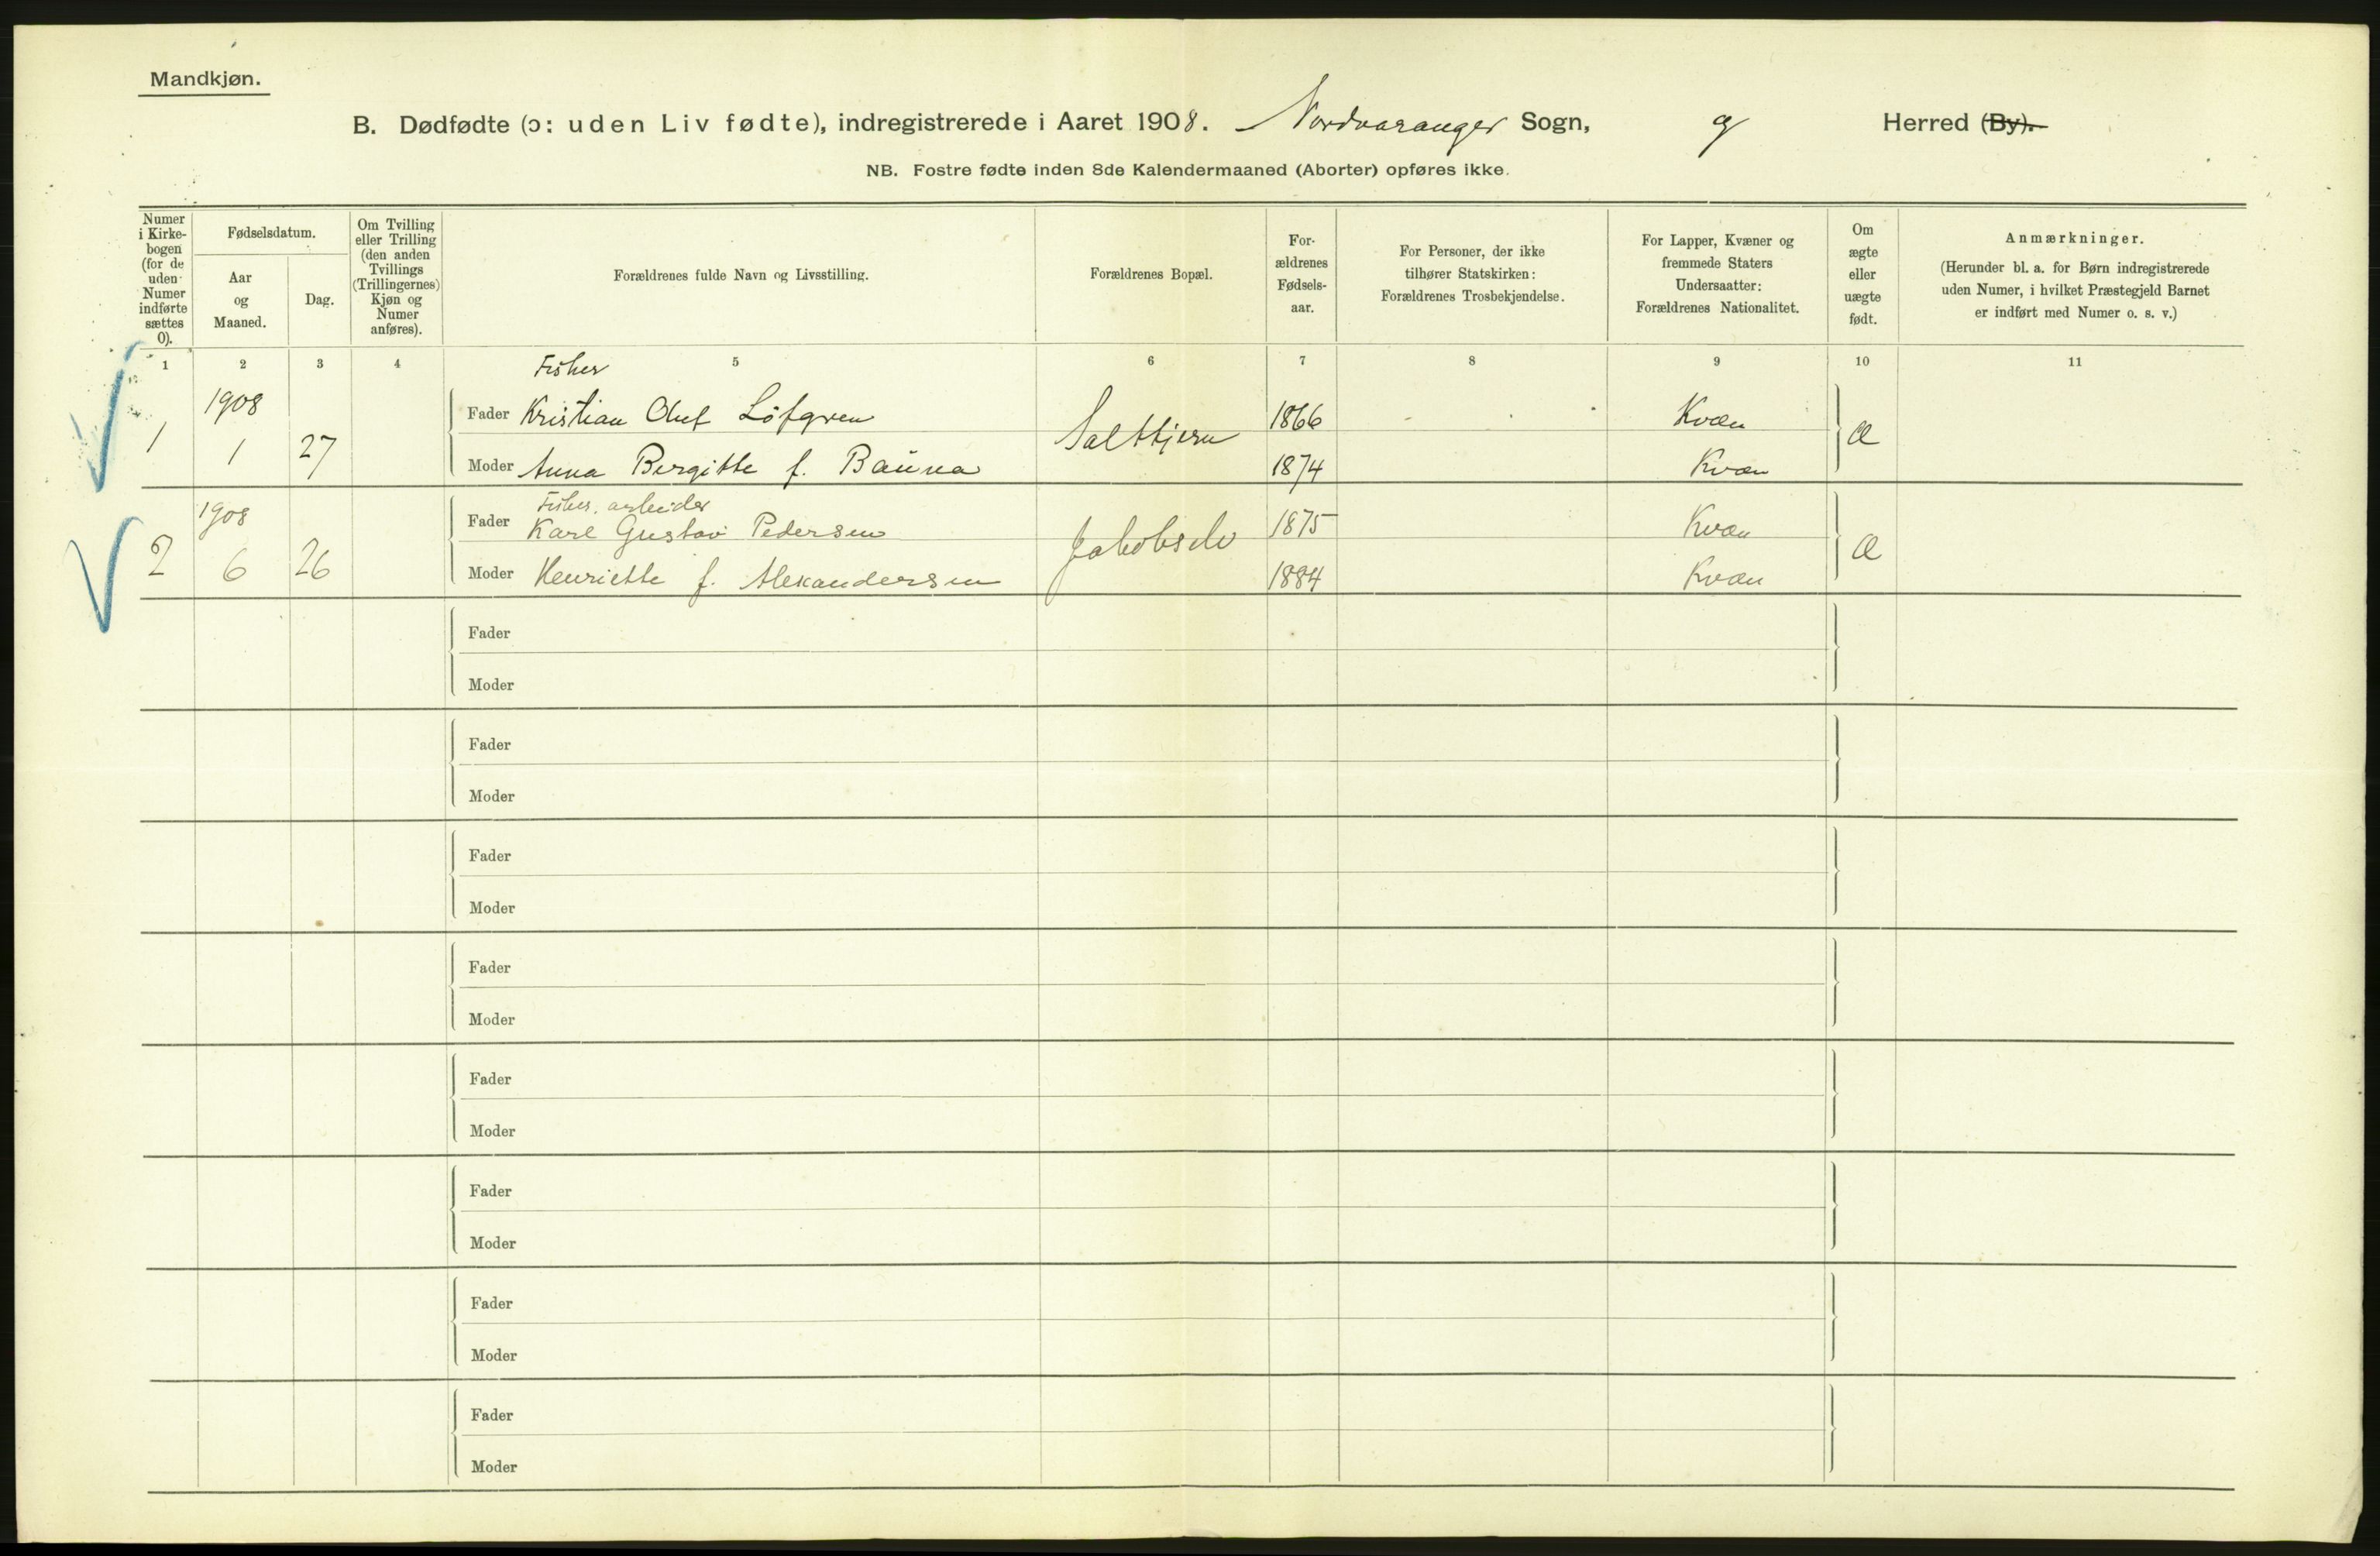 Mandkjøn.
B. Dødfødte (ɔ: uden Liv fødte), indregistrerede i Aaret 1908. Nordvaranger Sogn, og Herred (By).
NB. Fostre fødte inden 8de Kalendermaaned (Aborter) opføres ikke.
Numer i Kirke-bogen (for de uden Numer indførte sættes 0).
Fødselsdatum.
Aar og Maaned.
Dag.
Om Tvilling eller Trilling (den anden Tvillings (Trillingernes) Kjøn og Numer anføres).
Forældrenes fulde Navn og Livsstilling.
Forældrenes Bopæl.
For-ældrenes Fødsels-aar.
For Personer, der ikke tilhører Statskirken: Forældrenes Trosbekjendelse.
For Lapper, Kvæner og fremmede Staters Undersaatter: Forældrenes Nationalitet.
Om ægte eller uægte født.
Anmærkninger.
(Herunder bl. a. for Børn indregistrerede uden Numer, i hvilket Præstegjeld Barnet er indført med Numer o. s. v.)
1 2 3 4 5 6 7 8 9 10 11
Fisker
1908
Fader Kristian Oluf Löfgren 1866 Kvæn
1 1 27 Saltkjern Æ
Moder Anna Bergitte f. Bauna 1874 Kvæn
Fisker, arbeider
1908
Fader Karl Gustav Pedersen 1875 Kvæn
2 6 26 Jakobselv Æ
Moder Henriette f. Alexandersen 1884 Kvæn
Fader
Moder
Fader
Moder
Fader
Moder
Fader
Moder
Fader
Moder
Fader
Moder
Fader
Moder
Fader
Moder